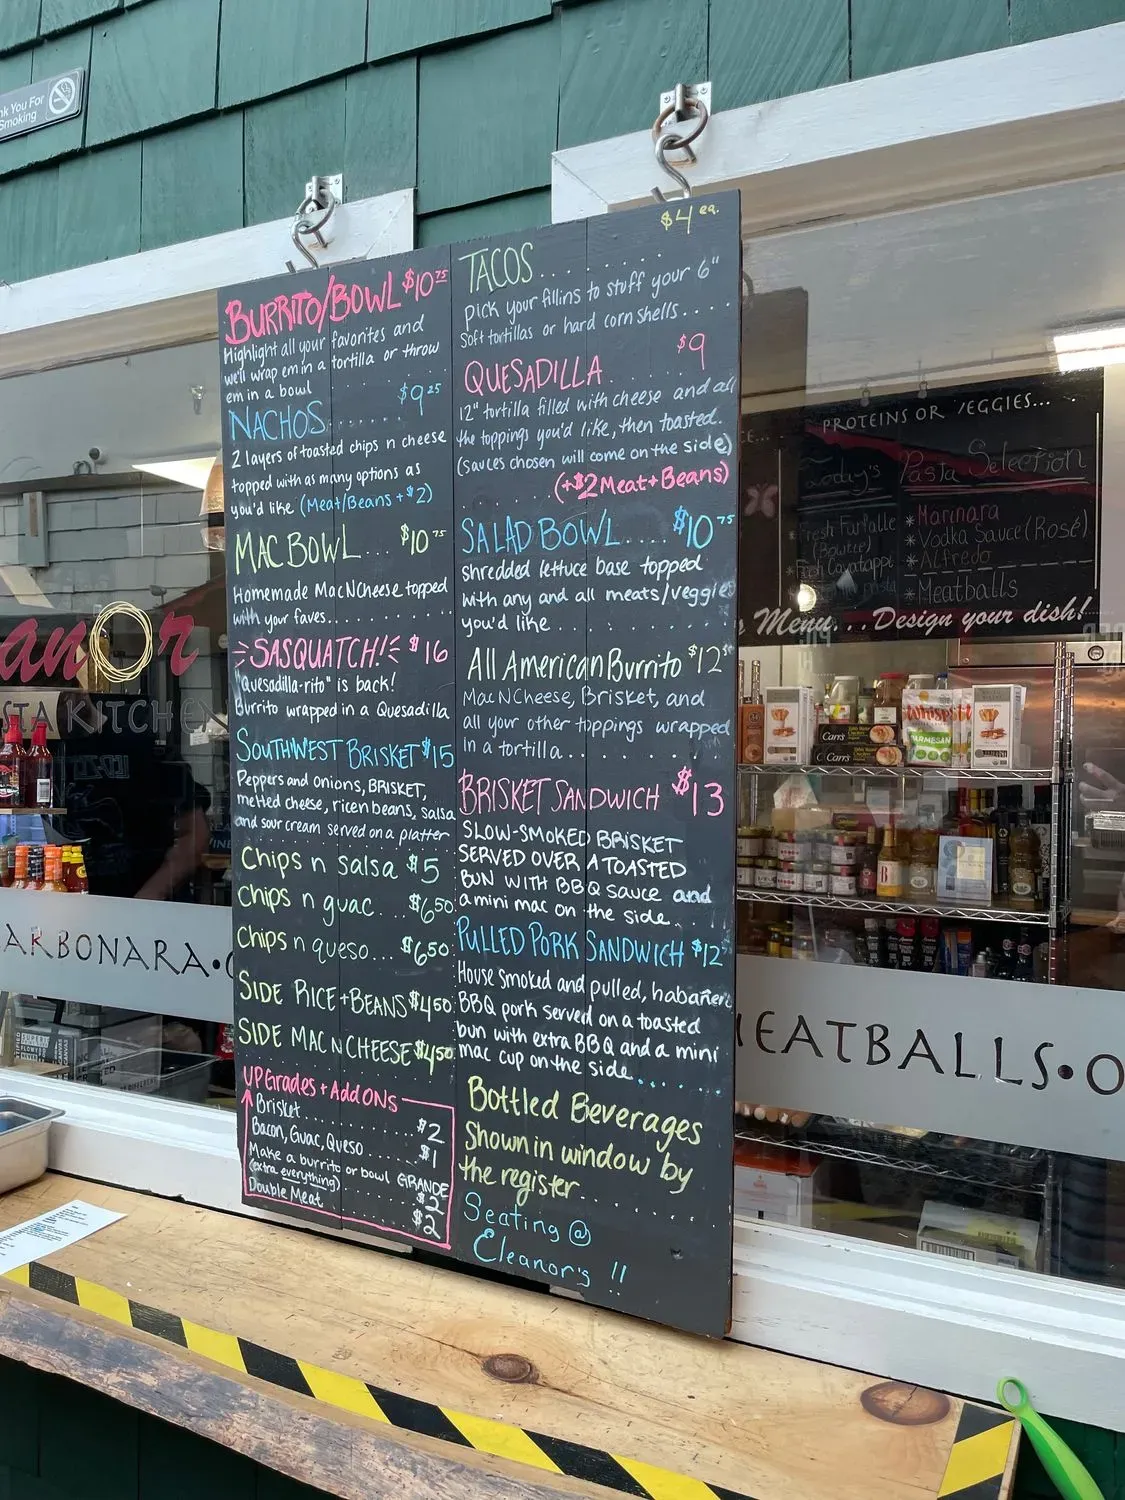 nk You For
Smoking
BURRITO/BOWL $10.75
Highlight all your favorites and
we'll wrap em in a tortilla or throw
em in a bowl
NACHOS....... $9.25
2 layers of toasted chips n cheese
topped with as many options as
you'd like (Meat/Beans +$2)
MAC BOWL... $10.75
Homemade MacNCheese topped
with your faves..............
SASQUATCH! $16
"Quesadilla-rito" is back!
Burrito wrapped in a Quesadilla
SOUTHWEST BRISKET $15
Peppers and onions, BRISKET,
melted cheese, ricen beans, salsa
and sour cream served on a platter
Chips n salsa $5
Chips n guac... $6.50
Chips n queso... $6.50
SIDE RICE+BEANS $4.50
SIDE MAC N CHEESE $4.50
UPGrades + AddONS
Brisket........... $2
Bacon, Guac, Queso...... $1
Make a burrito or bowl GRANDE
(extra everything) ........ $2
Double Meat......... $2
$4 ea.
TACOS........
pick your fillins to stuff your 6"
Soft tortillas or hard corn shells...
$9
QUESADILLA......
12" tortilla filled with cheese and all
the toppings you'd like, then toasted.
(sauces chosen will come on the side)
..... (+$2 Meat+Beans)
SALAD BOWL.... $10.75
shredded lettuce base topped
with any and all meats/veggies
you'd like..............
All American Burrito $12.50
MacNCheese, Brisket, and
all your other toppings wrapped
in a tortilla............
BRISKET SANDWICH $13
SLOW-SMOKED BRISKET
SERVED OVER A TOASTED
BUN WITH BBQ SAUCE and
a mini mac on the side..
PULLED PORK SANDWICH $12
House smoked and pulled, habañero
BBQ pork served on a toasted
bun with extra BBQ and a mini
mac cup on the side.......
Bottled Beverages
Shown in window by
the register.......
Seating @
Eleanor's !!
anor
STA KITCHEN
ARBONARA•
CE...
PROTEINS OR VEGGIES...
Today's Pasta Selection
Fresh Farfalle
(Bowtie)
*Marinara
*Vodka Sauce (Rosé)
*Alfredo
Meatballs
Menu... Design your dish!
Carr's
Carr's
Whisps
PARMESAN
B
MEATBALLS•O